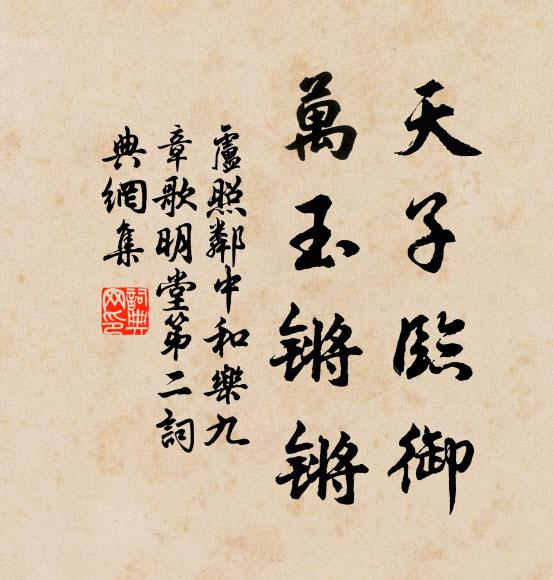 天子臨御
萬玉锵锵
盧照鄰中和樂九
章歌明堂第二詞
典網集
詞典
网印